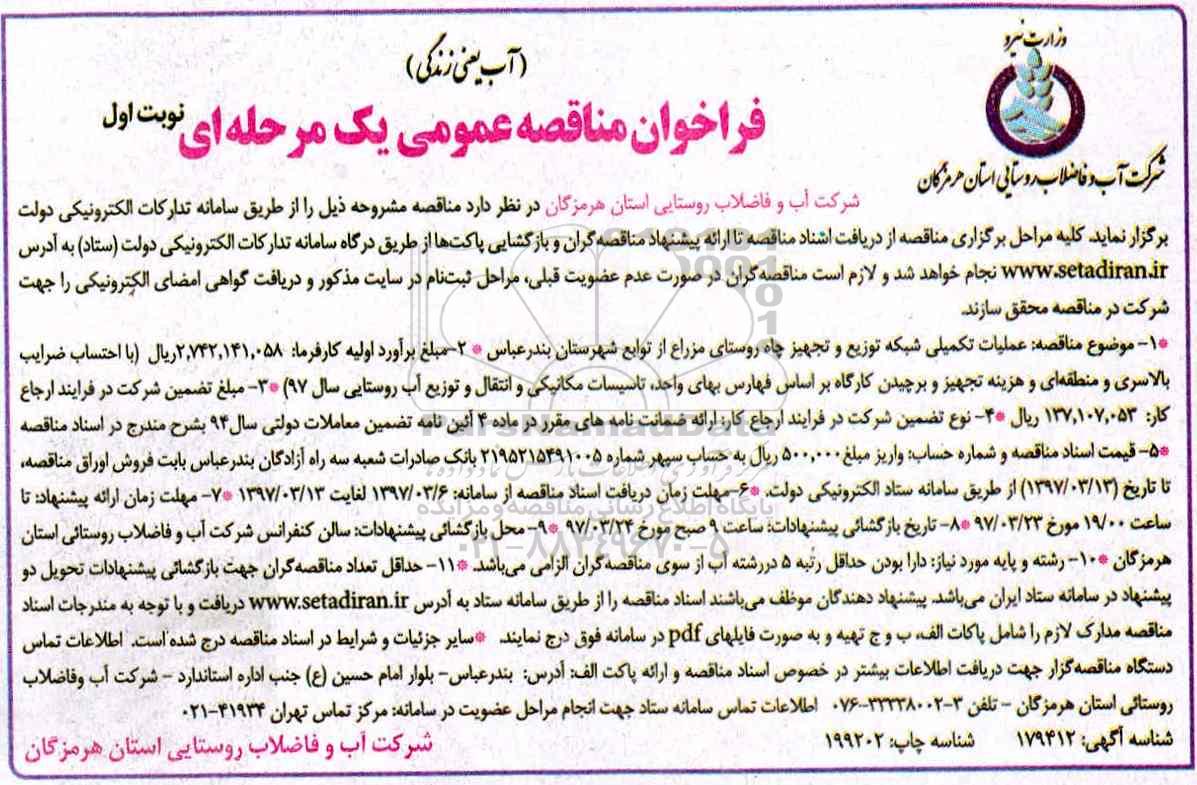 وزارت نیرو
شرکت آب و فاضلاب روستایی استان هرمزگان
(آب یعنی زندگی)
فراخوان مناقصه عمومی یک مرحله‌ای نوبت اول
شرکت آب و فاضلاب روستایی استان هرمزگان در نظر دارد مناقصه مشروحه ذیل را از طریق سامانه تدارکات الکترونیکی دولت
برگزار نماید. کلیه مراحل برگزاری مناقصه از دریافت اسناد مناقصه تا ارائه پیشنهاد مناقصه‌گران و بازگشایی پاکت‌ها از طریق درگاه سامانه تدارکات الکترونیکی دولت (ستاد) به آدرس
www.setadiran.ir نجام خواهد شد و لازم است مناقصه‌گران در صورت عدم عضویت قبلی، مراحل ثبت‌نام در سایت مذکور و دریافت گواهی امضای الکترونیکی را جهت
شرکت در مناقصه محقق سازند.
*۱- موضوع مناقصه: عملیات تکمیلی شبکه توزیع و تجهیز چاه روستای مزراع از توابع شهرستان بندرعباس *۲-مبلغ برآورد اولیه کارفرما: ۲,۷۴۲,۱۴۱,۰۵۸ریال (با احتساب ضرایب
بالاسری و منطقه‌ای و هزینه تجهیز و برچیدن کارگاه بر اساس فهارس بهای واحد، تاسیسات مکانیکی و انتقال و توزیع آب روستایی سال ۹۷) *۳- مبلغ تضمین شرکت در فرایند ارجاع
کار: ۱۳۷,۱۰۷,۰۵۳ ریال *۴- نوع تضمین شرکت در فرایند ارجاع کار: ارائه ضمانت نامه های مقرر در ماده ۴ آئین نامه تضمین معاملات دولتی سال۹۴ بشرح مندرج در اسناد مناقصه
*۵- قیمت اسناد مناقصه و شماره حساب: واریز مبلغ۵۰۰,۰۰۰ ریال به حساب سپهر شماره ۲۱۹۵۲۱۵۴۹۱۰۰۵ بانک صادرات شعبه سه راه آزادگان بندرعباس بابت فروش اوراق مناقصه،
تا تاریخ (۱۳۹۷/۰۳/۱۳) از طریق سامانه ستاد الکترونیکی دولت. *۶-مهلت زمان دریافت اسناد مناقصه از سامانه: ۱۳۹۷/۰۳/۶ لغایت ۱۳۹۷/۰۳/۱۳ *۷- مهلت زمان ارائه پیشنهاد: تا
ساعت ۱۹/۰۰ مورخ ۹۷/۰۳/۲۳ *۸- تاریخ بازگشائی پیشنهادات: ساعت ۹ صبح مورخ ۹۷/۰۳/۲۴ *۹- محل بازگشائی پیشنهادات: سالن کنفرانس شرکت آب و فاضلاب روستائی استان
هرمزگان *۱۰- رشته و پایه مورد نیاز: دارا بودن حداقل رتبه ۵ دررشته آب از سوی مناقصه‌گران الزامی می‌باشد. *۱۱- حداقل تعداد مناقصه‌گران جهت بازگشائی پیشنهادات تحویل دو
پیشنهاد در سامانه ستاد ایران می‌باشد. پیشنهاد دهندگان موظف می‌باشند اسناد مناقصه را از طریق سامانه ستاد به آدرس www.setadiran.ir دریافت و با توجه به مندرجات اسناد
مناقصه مدارک لازم را شامل پاکات الف، ب و ج تهیه و به صورت فایلهای pdf در سامانه فوق درج نمایند. *سایر جزئیات و شرایط در اسناد مناقصه درج شده است. اطلاعات تماس
دستگاه مناقصه‌گزار جهت دریافت اطلاعات بیشتر در خصوص اسناد مناقصه و ارائه پاکت الف: آدرس: بندرعباس- بلوار امام حسین (ع) جنب اداره استاندارد - شرکت آب وفاضلاب
روستائی استان هرمزگان - تلفن ۳-۳۳۳۳۸۰۰۲-۰۷۶ اطلاعات تماس سامانه ستاد جهت انجام مراحل عضویت در سامانه: مرکز تماس تهران ۴۱۹۳۴-۰۲۱
شناسه آگهی: ۱۷۹۴۱۲ شناسه چاپ: ۱۹۹۲۰۲
شرکت آب و فاضلاب روستایی استان هرمزگان
ParsNamadData
پایگاه اطلاع رسانی مناقصه و مزایده
۰۲۱-۸۸۳۴۹۶۷۰-۵